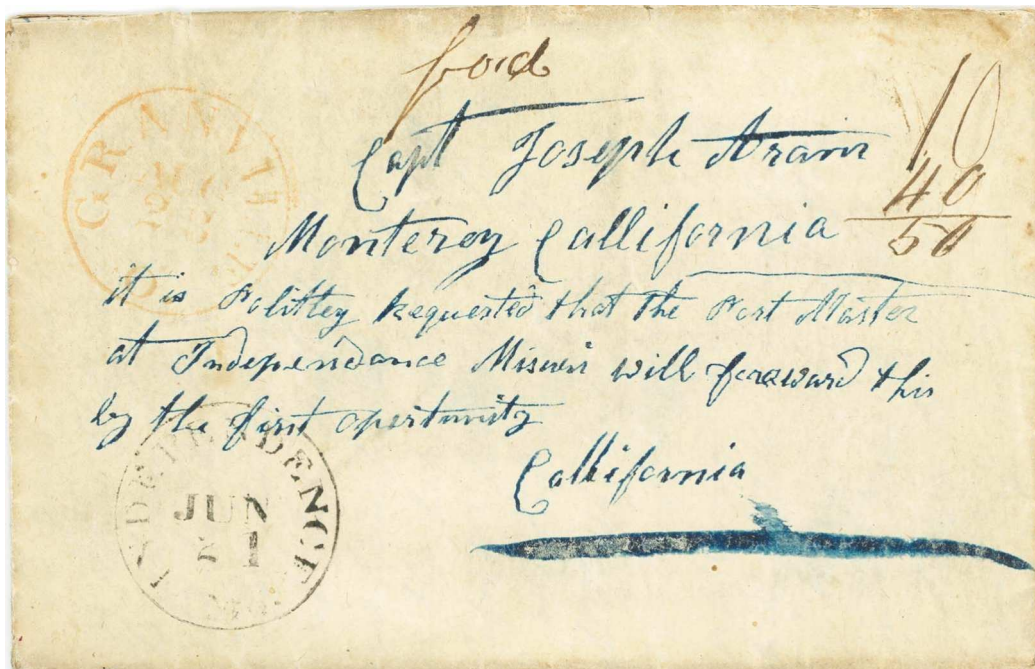 ford
10
Capt Joseph Aram
40
Monterey Callifornia
50
it is Polittey Requested that the Post Master
at Independance Missuri will foreward this
by the first opertunity
Callifornia
GRANVILLE
INDEPENDENCE
JUN
21
MO.